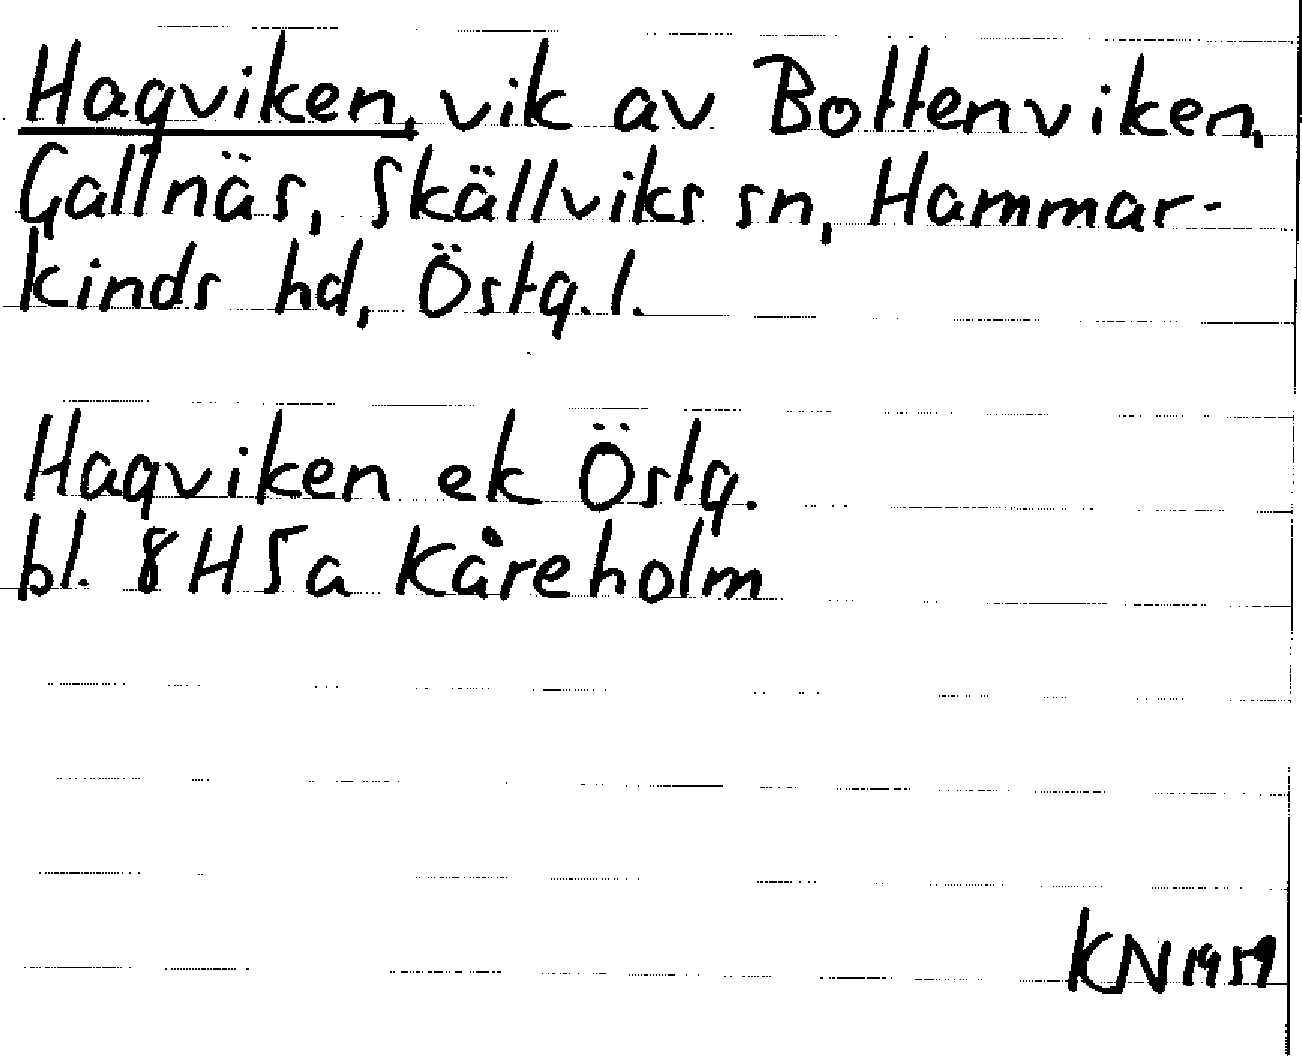 Hagviken, vik av Bottenviken,
Gallnäs, Skällviks sn, Hammar-
kinds hd, Östg.l.
Hagviken ek Östg.
bl. 8H5a Kåreholm
KN 1959